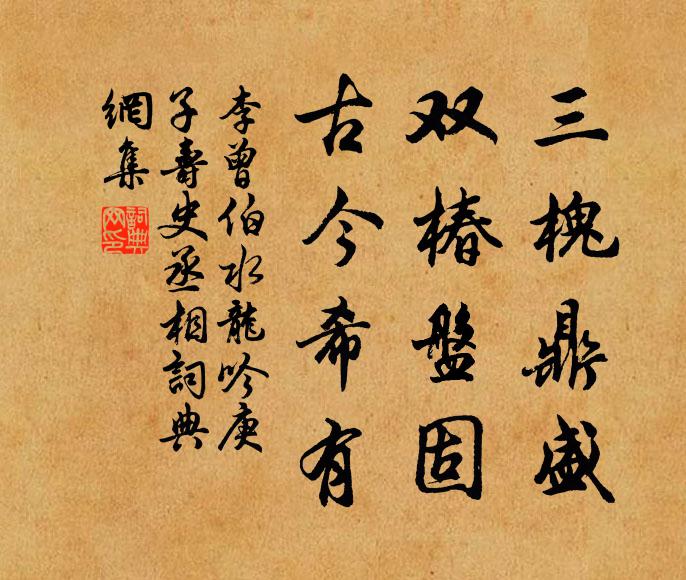 三槐鼎盛
双椿盤固
古今希有
李曾伯水龍吟庚
子壽史丞相詞典
網集
詞典網印